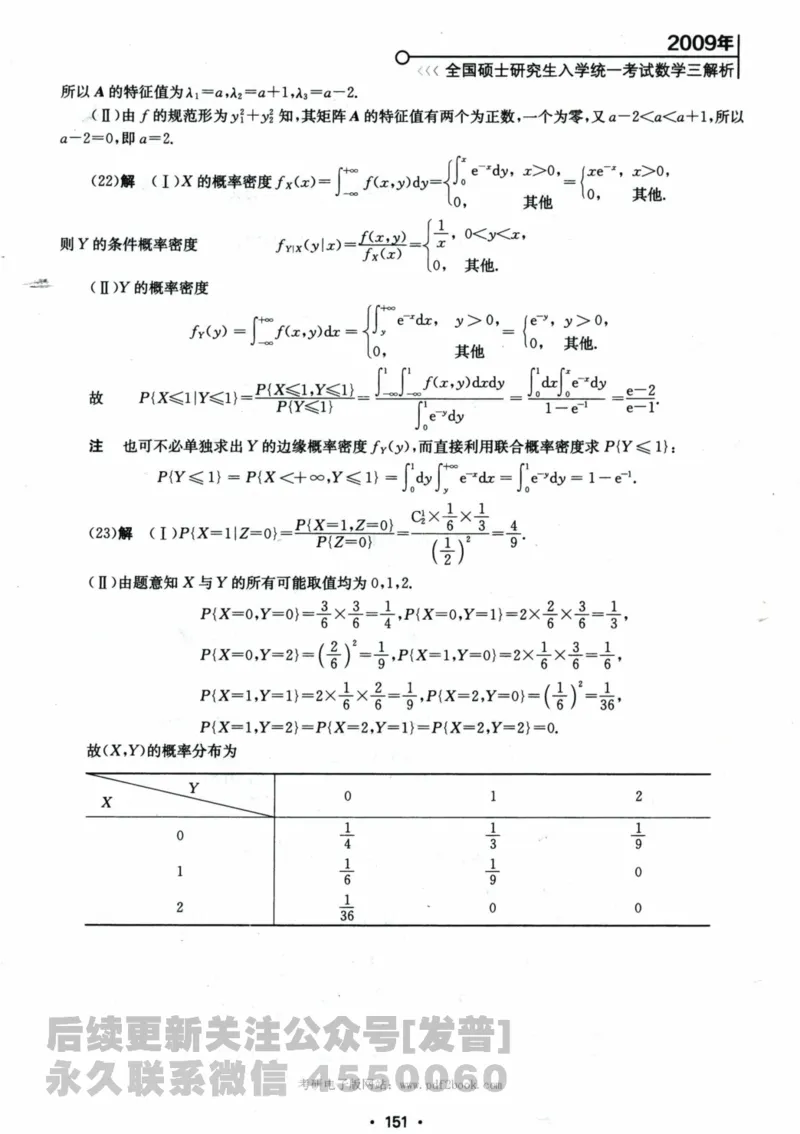 2009年
<<< 全国硕士研究生入学统一考试数学三解析
所以 A 的特征值为 λ₁=a,λ₂=a+1,λ₃=a−2.
(Ⅱ)由 f 的规范形为 y₁²+y₂² 知,其矩阵 A 的特征值有两个为正数,一个为零,又 a−2<a<a+1,所以
a−2=0,即 a=2.
(22)解 (Ⅰ)X 的概率密度 f_X(x)=∫_{−∞}^{+∞} f(x,y)dy={∫_0^x e^{−x}dy, x>0, 0, 其他 ={xe^{−x}, x>0, 0, 其他.
则 Y 的条件概率密度 f_{Y|X}(y|x)=f(x,y)/f_X(x)={1/x, 0<y<x, 0, 其他.
(Ⅱ)Y 的概率密度
f_Y(y)=∫_{−∞}^{+∞} f(x,y)dx={∫_y^{+∞} e^{−x}dx, y>0, 0, 其他 ={e^{−y}, y>0, 0, 其他.
故 P{X≤1|Y≤1}=P{X≤1,Y≤1}/P{Y≤1}=∫_{−∞}^1∫_{−∞}^1 f(x,y)dxdy/∫_0^1 e^{−y}dy=∫_0^1 dx∫_0^x e^{−x}dy/(1−e^{−1})=(e−2)/(e−1).
注 也可不必单独求出 Y 的边缘概率密度 f_Y(y),而直接利用联合概率密度求 P{Y≤1}:
P{Y≤1}=P{X<+∞,Y≤1}=∫_0^1 dy∫_y^{+∞} e^{−x}dx=∫_0^1 e^{−y}dy=1−e^{−1}.
(23)解 (Ⅰ)P{X=1|Z=0}=P{X=1,Z=0}/P{Z=0}=(C₂¹×1/6×1/3)/(1/2)²=4/9.
(Ⅱ)由题意知 X 与 Y 的所有可能取值均为 0,1,2.
P{X=0,Y=0}=3/6×3/6=1/4,P{X=0,Y=1}=2×2/6×3/6=1/3,
P{X=0,Y=2}=(2/6)²=1/9,P{X=1,Y=0}=2×1/6×3/6=1/6,
P{X=1,Y=1}=2×1/6×2/6=1/9,P{X=2,Y=0}=(1/6)²=1/36,
P{X=1,Y=2}=P{X=2,Y=1}=P{X=2,Y=2}=0.
故(X,Y)的概率分布为
X Y 0 1 2
0 1/4 1/3 1/9
1 1/6 1/9 0
2 1/36 0 0
后续更新关注公众号[发普]
永久联系微信 4550060
考研电子版网站：www.pdf2book.com
• 151 •